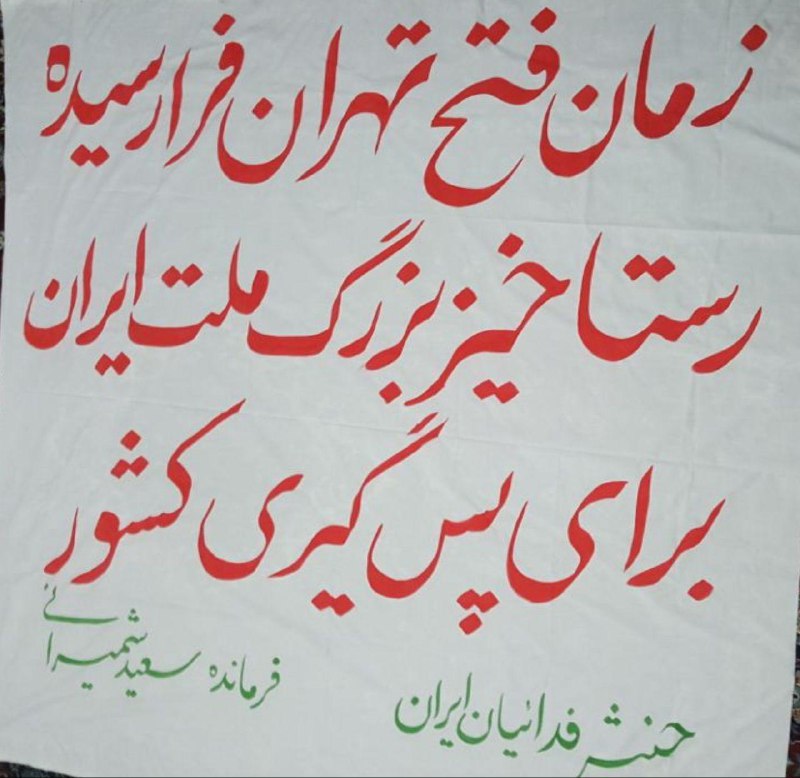 زمان فتح تهران فرارسیده
رستاخیز بزرگ ملت ایران
برای پس گیری کشور
جنبش فدائیان ایران
فرمانده سعید شمیرانی